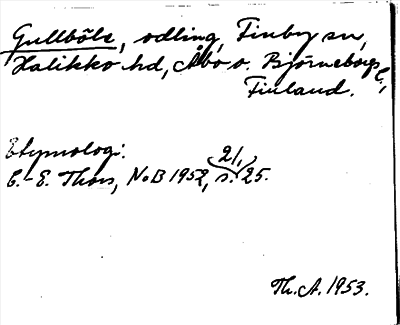 Gullböle, odling, Finby sn,
Halikko hd, Åbo o. Björneborgs l.,
Finland.
Etymologi:
C.-E. Thors, NoB 1952, s. 21, 25.
Th. A. 1953.